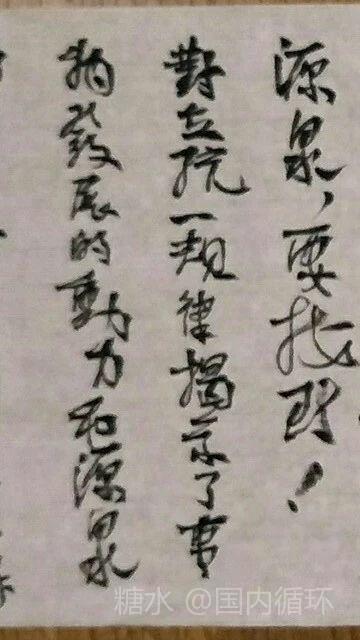 源泉，要找
對立統一規律揭示了事
物發展的動力和源泉
糖水 @国内循环